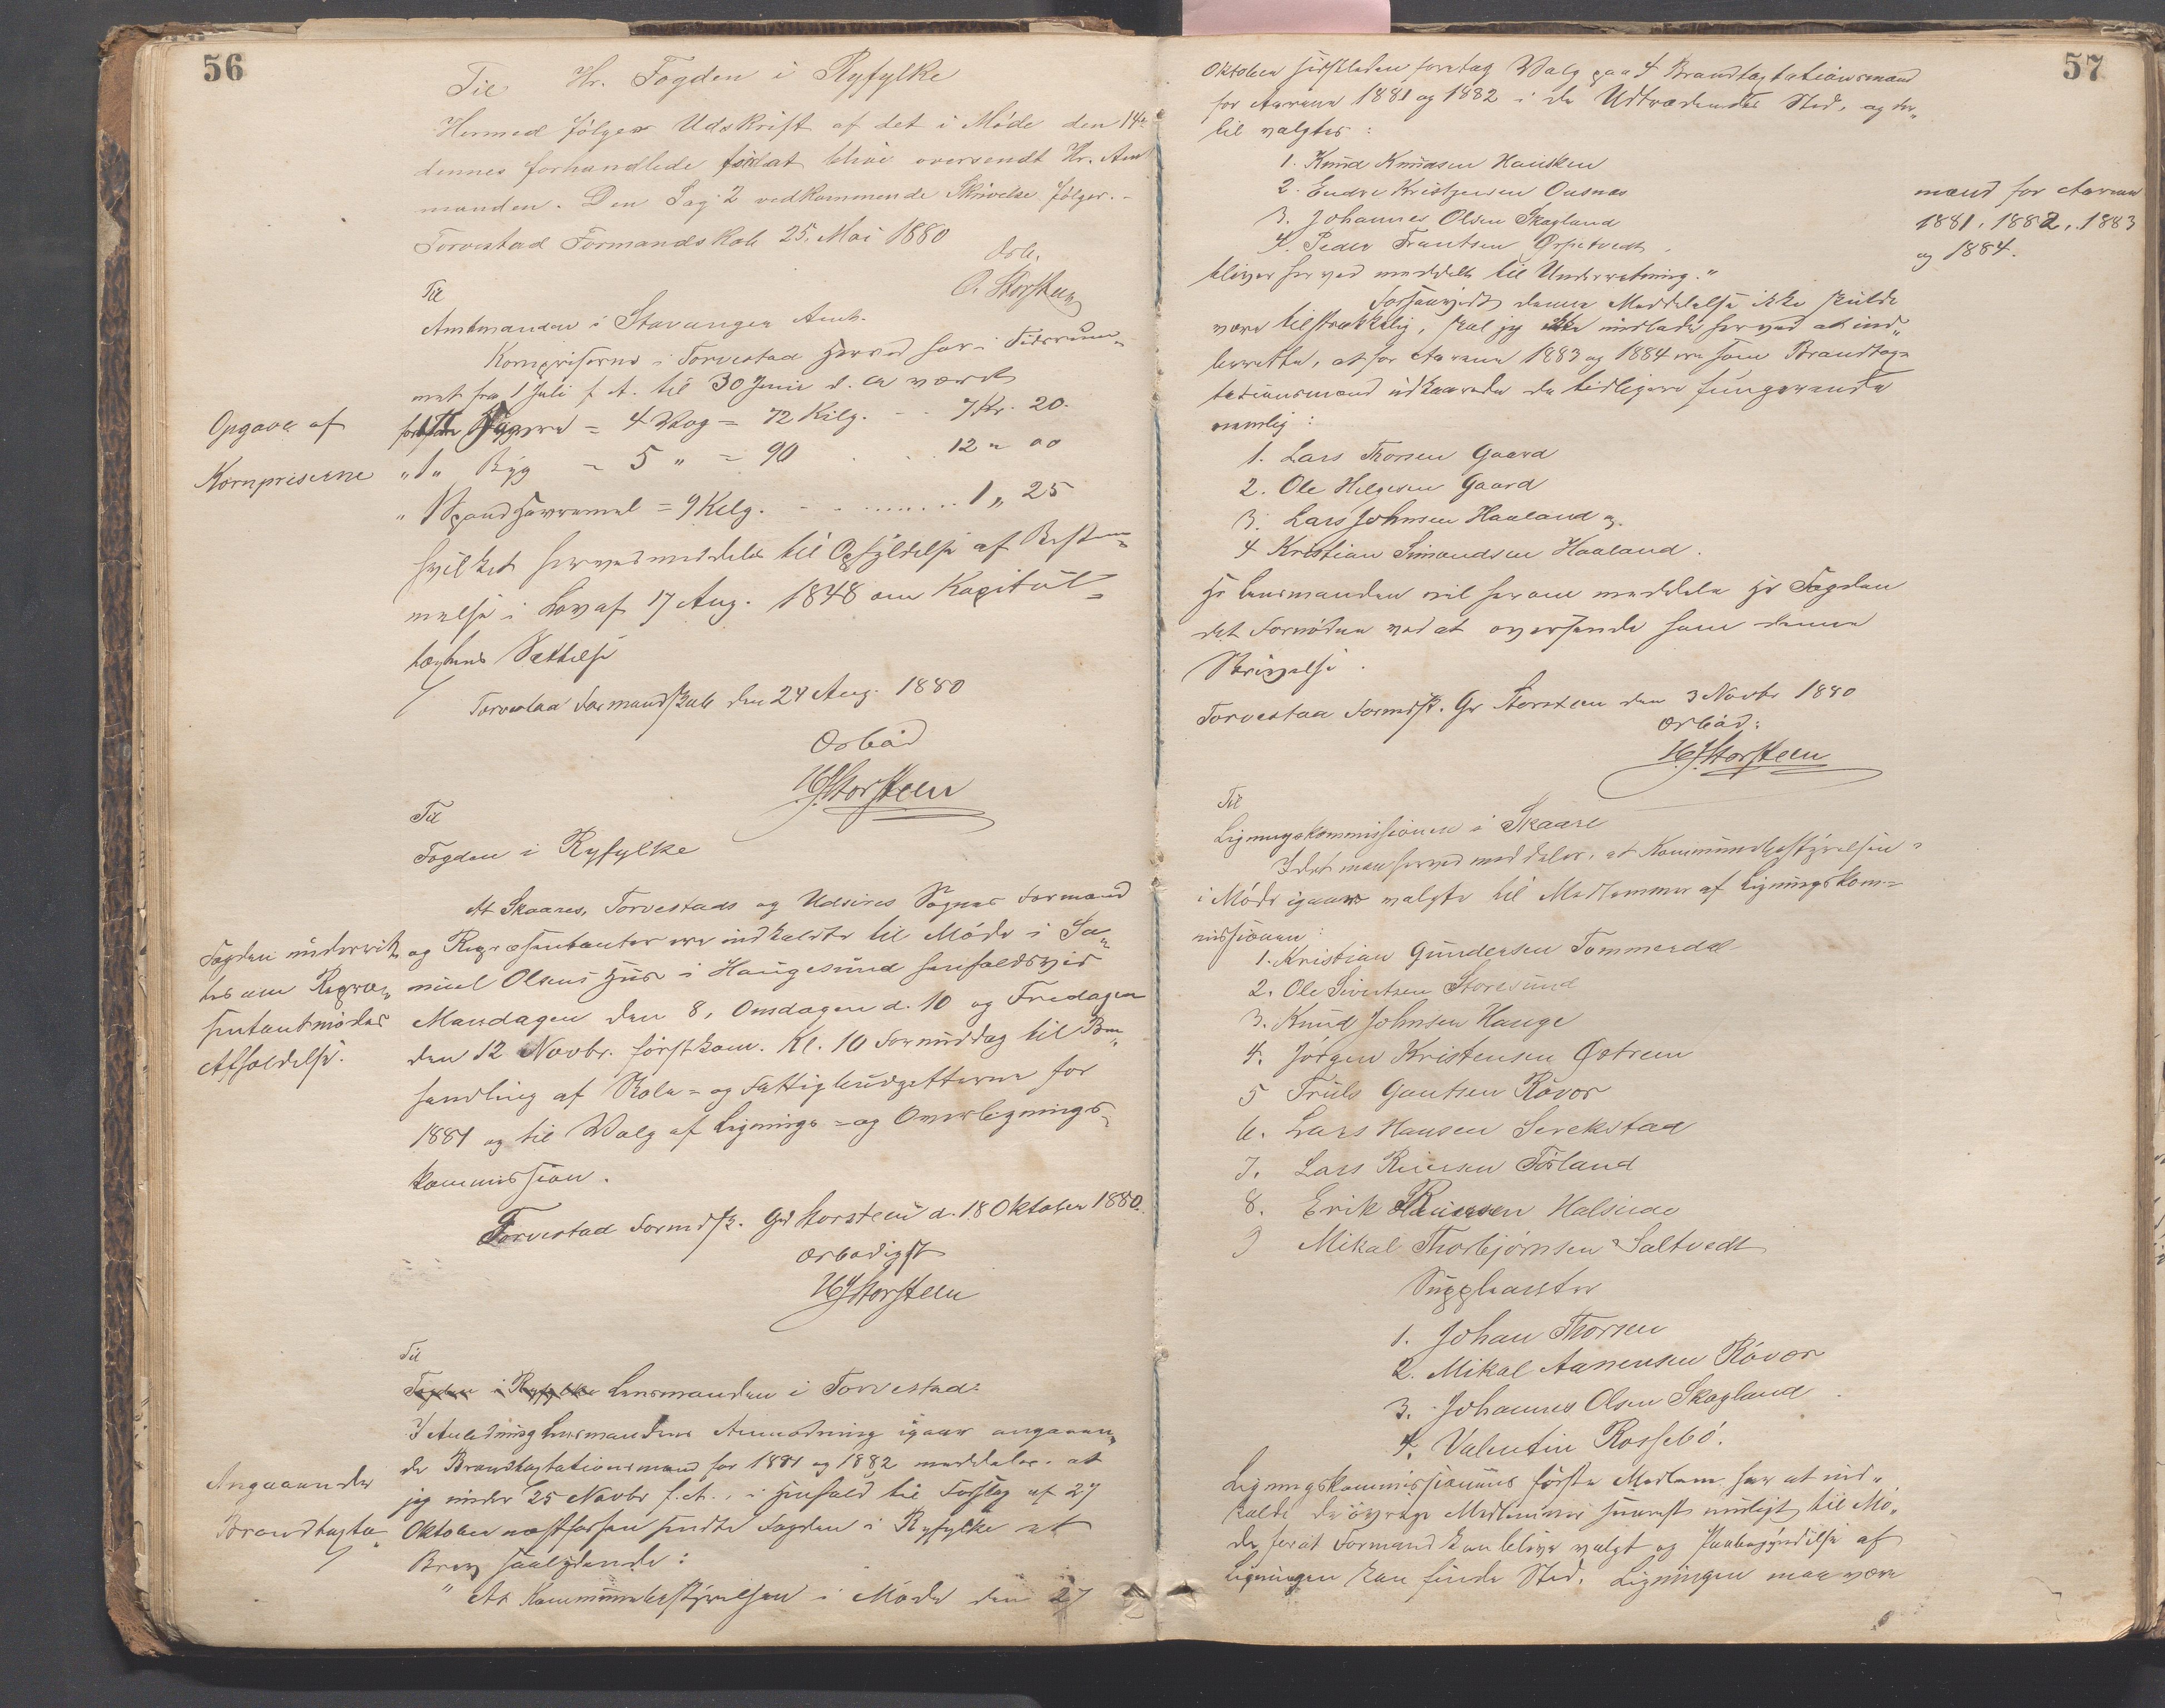 56
Til Hr. Fogden i Ryfylke
Hermed følger Udskrift af det i Møde den 14de
dennes forhandlede for at blive oversendt Hr. Amt
manden. Den Sag 2 vedkommende Skrivelse følger. -
Torvestad Formandskab 25. Mai 1880
Ørb.
O. Storsteen
Til
Amtmanden i Stavanger Amt.
Kornpriserne i Torvestad Herred har i Tidsrum-
met fra 1 Juli f. A. til 30 Juni d. A. været
Opgave af
Kornpriserne
for 1 Tønde Havre = 4 Vog = 72 Kilg. - - 7 Kr. 20.
" 1 " Byg = 5 " = 90 . . 12 " 00
" 1 Spand Havremel = 9 Kilg. - - ......... 1 " 25
hvilket herved meddeles til Opfyldelse af Bestem-
melse i Lov af 17 Aug. 1848 om Kapitel-
taxtens Sættelse
Torvestad Formandskab den 24 Aug. 1880
Ørbød
HJStorsteen
Til
Fogden i Ryfylke
At Skaares, Torvestads og Udsires Sognes Formænd
og Repræsentanter ere indkaldte til Møde i Sa-
muel Olsens Hus i Haugesund henholdsvis
Mandagen den 8, Onsdagen d. 10 og Fredagen
den 12 Novbr. førstkom. Kl. 10 Formiddag til Be-
handling af Skole- og Fattigbudgetterne for
1881 og til Valg af Lignings- og Overlignings-
kommission.
Fogden underret-
tes om Repræ-
sentantmøders
Afholdelse.
Torvestad Formdsk. Grd Storsteen d. 18 Oktober 1880.
ærbødigst
HJStorsteen
Til
Fogden i Ryfylke Lensmanden i Torvestad
I Anledning Lensmandens Anmodning igaar angaaen-
de Brandtaxtationsmænd for 1881 og 1882 meddeles, at
jeg under 25 Novbr f. A., i Henhold til Forslag af 27
Oktober næstforhen sendte Fogden i Ryfylke et
Brev saalydende:
" At Kommunebestyrelsen i Møde den 27
Angaaende
Brandtaxta-
57
Oktober sidstleden foretog Valg paa 4 Brandtaxtationsmænd
for Aarene 1881 og 1882 i de Udtrædendes Sted, og der-
til valgtes:
1. Knud Knudsen Hausken
2. Endre Kristensen Ousnes
3. Johannes Olsen Skogland
4. Peder Frantsen
bliver herved meddelt til Underretning."
mænd for Aarene
1881, 1882, 1883
og 1884.
Forsaavidt denne Meddelelse ikke skulde
være tilstrækkelig, skal jeg ikke undlade herved at ind-
berette, at for Aarene 1883 og 1884 ere som Brandtax-
tationsmænd udkaarede de tidligere fungerende
nemlig:
1. Lars Thorsen Gaard
2. Ole Helgesen Gaard
3. Lars Johnsen Haaland og
4 Kristian Simonsen Haaland.
Hr Lensmanden vil herom meddele Hr Fogden
det Fornødne ved at oversende ham denne
Skrivelse.
Torvestad Formdsk. Gr Storsteen den 3 Novbr 1880
Ørbød:
HJStorsteen
Til
Ligningskommissionen i Skaare
Idet man herved meddeler, at Kommunebestyrelsen
i Møde igaar valgte til Medlemmer af Ligningskom-
missionen:
1. Kristian Gundersen Tommerdal
2. Ole Sivertsen Storesund
3. Knud Johnsen Hauge
4. Jørgen Kristensen Østrem
5 Truls Gautsen Røvær
6. Lars Hansen Serekstad
7. Lars Reiersen Førland
8. Erik Reiersen
9 Mikal Thorbjørnsen Saltvedt
Suppleanter
1. Johan Thorsen
2. Mikal Aanensen Røvær
3. Johannes Olsen Skogland
4. Valentin Rossebø.
Ligningskommissionens første Medlem har at ind-
kalde de øvrige Medlemmer snarest muligt til Mø-
de forat Formand kan blive valgt og Paabegyndelse af
Ligningen kan finde Sted. Ligningen maa være